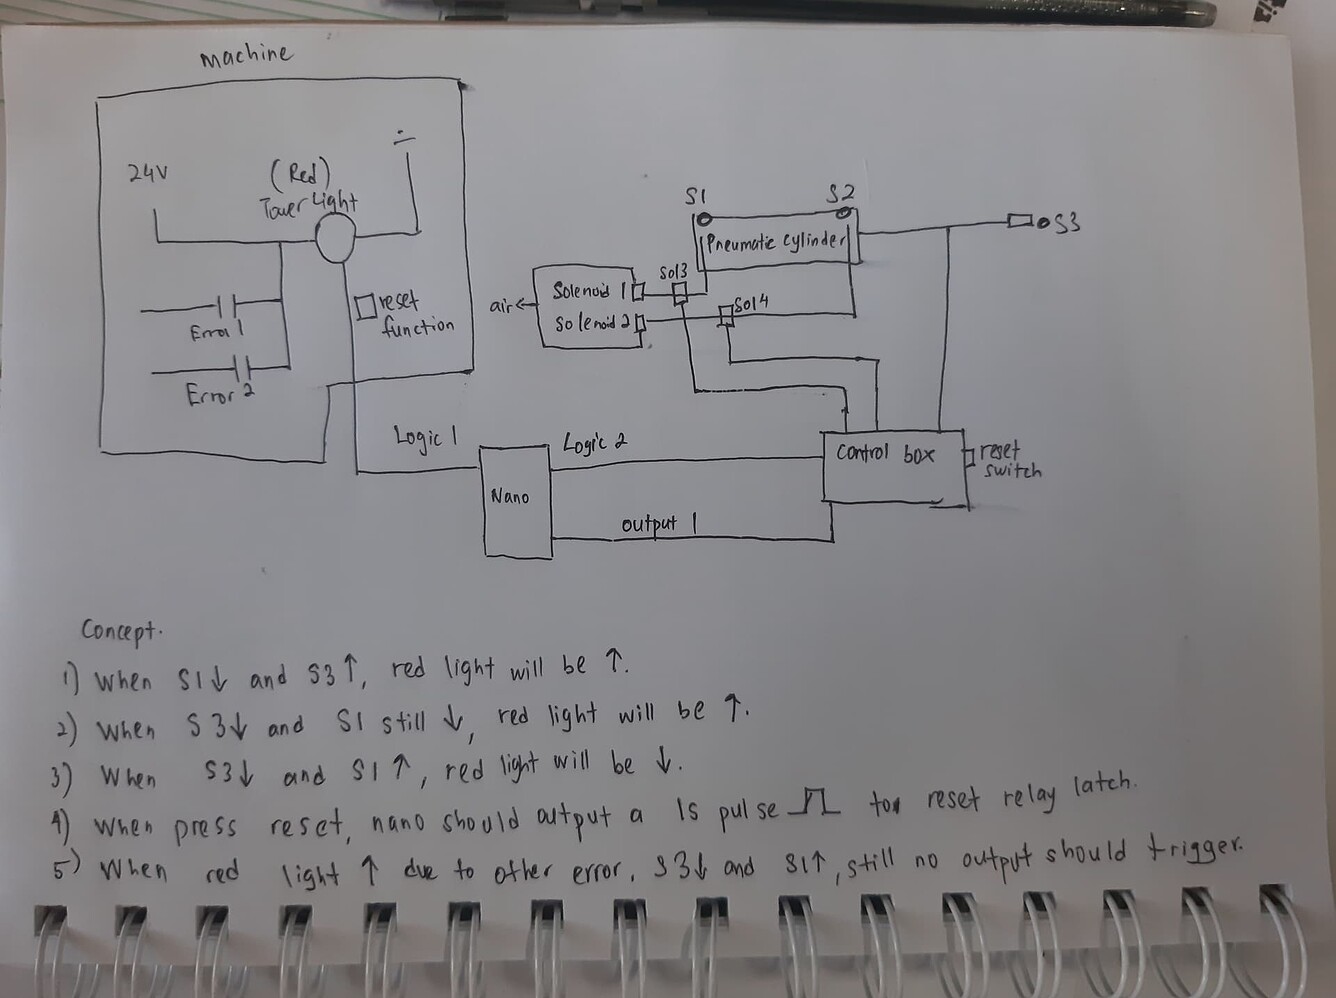 machine
24V
(Red)
Tower Light
reset
function
Error 1
Error 2
S1
S2
S3
Pneumatic cylinder
Sol3
Sol4
Solenoid 1
Solenoid 2
air
Logic 1
Logic 2
Nano
output 1
control box
reset
switch
Concept.
1) When S1↓ and S3↑, red light will be ↑.
2) When S3↓ and S1 still ↓, red light will be ↑.
3) When S3↓ and S1↑, red light will be ↓.
4) When press reset, nano should output a 1s pulse for reset relay latch.
5) When red light ↑ due to other error, S3↓ and S1↑, still no output should trigger.